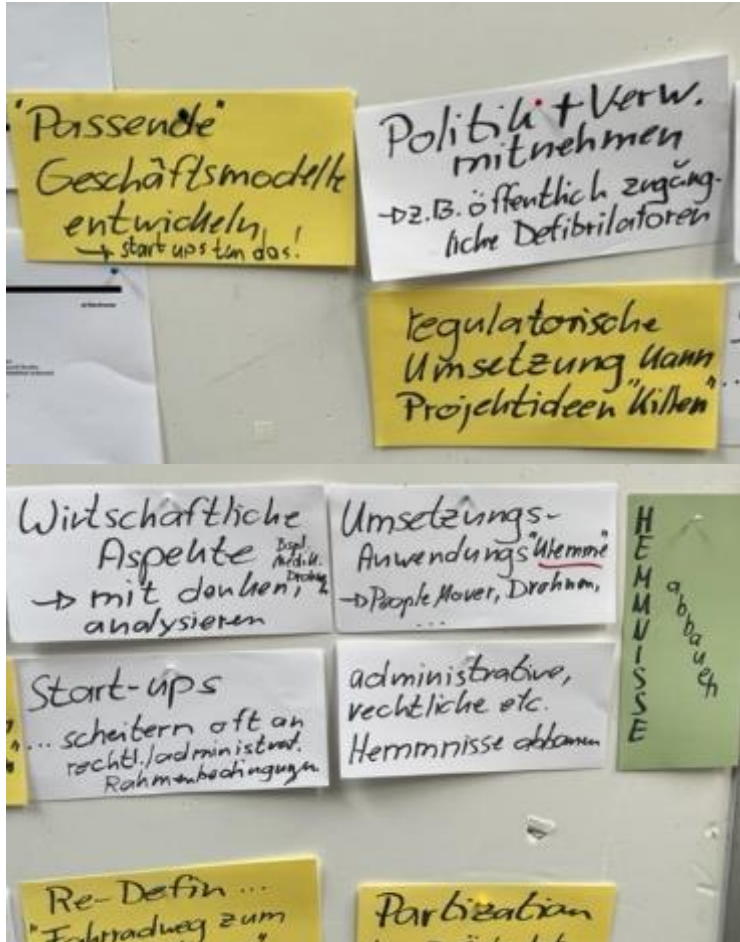 "Passende"
Geschäftsmodelle
entwickeln
→ start ups tun das!
Politik + Verw.
mitnehmen
→ z.B. öffentlich zugäng-
liche Defibrilatoren
regulatorische
Umsetzung kann
Projektideen "killen"
Wirtschaftliche
Aspekte
Bspl.
→ mit denken,
analysieren
Umsetzungs-
Anwendungs"klemme"
→ People Mover, Drohnen,
...
HEMMNISSE
abbauen
Start-ups
... scheitern oft an
rechtl./administrat.
Rahmenbedingungen
administrative,
rechtliche etc.
Hemmnisse abbauen
Re-Defin...
"Fahrradweg zum
Partization